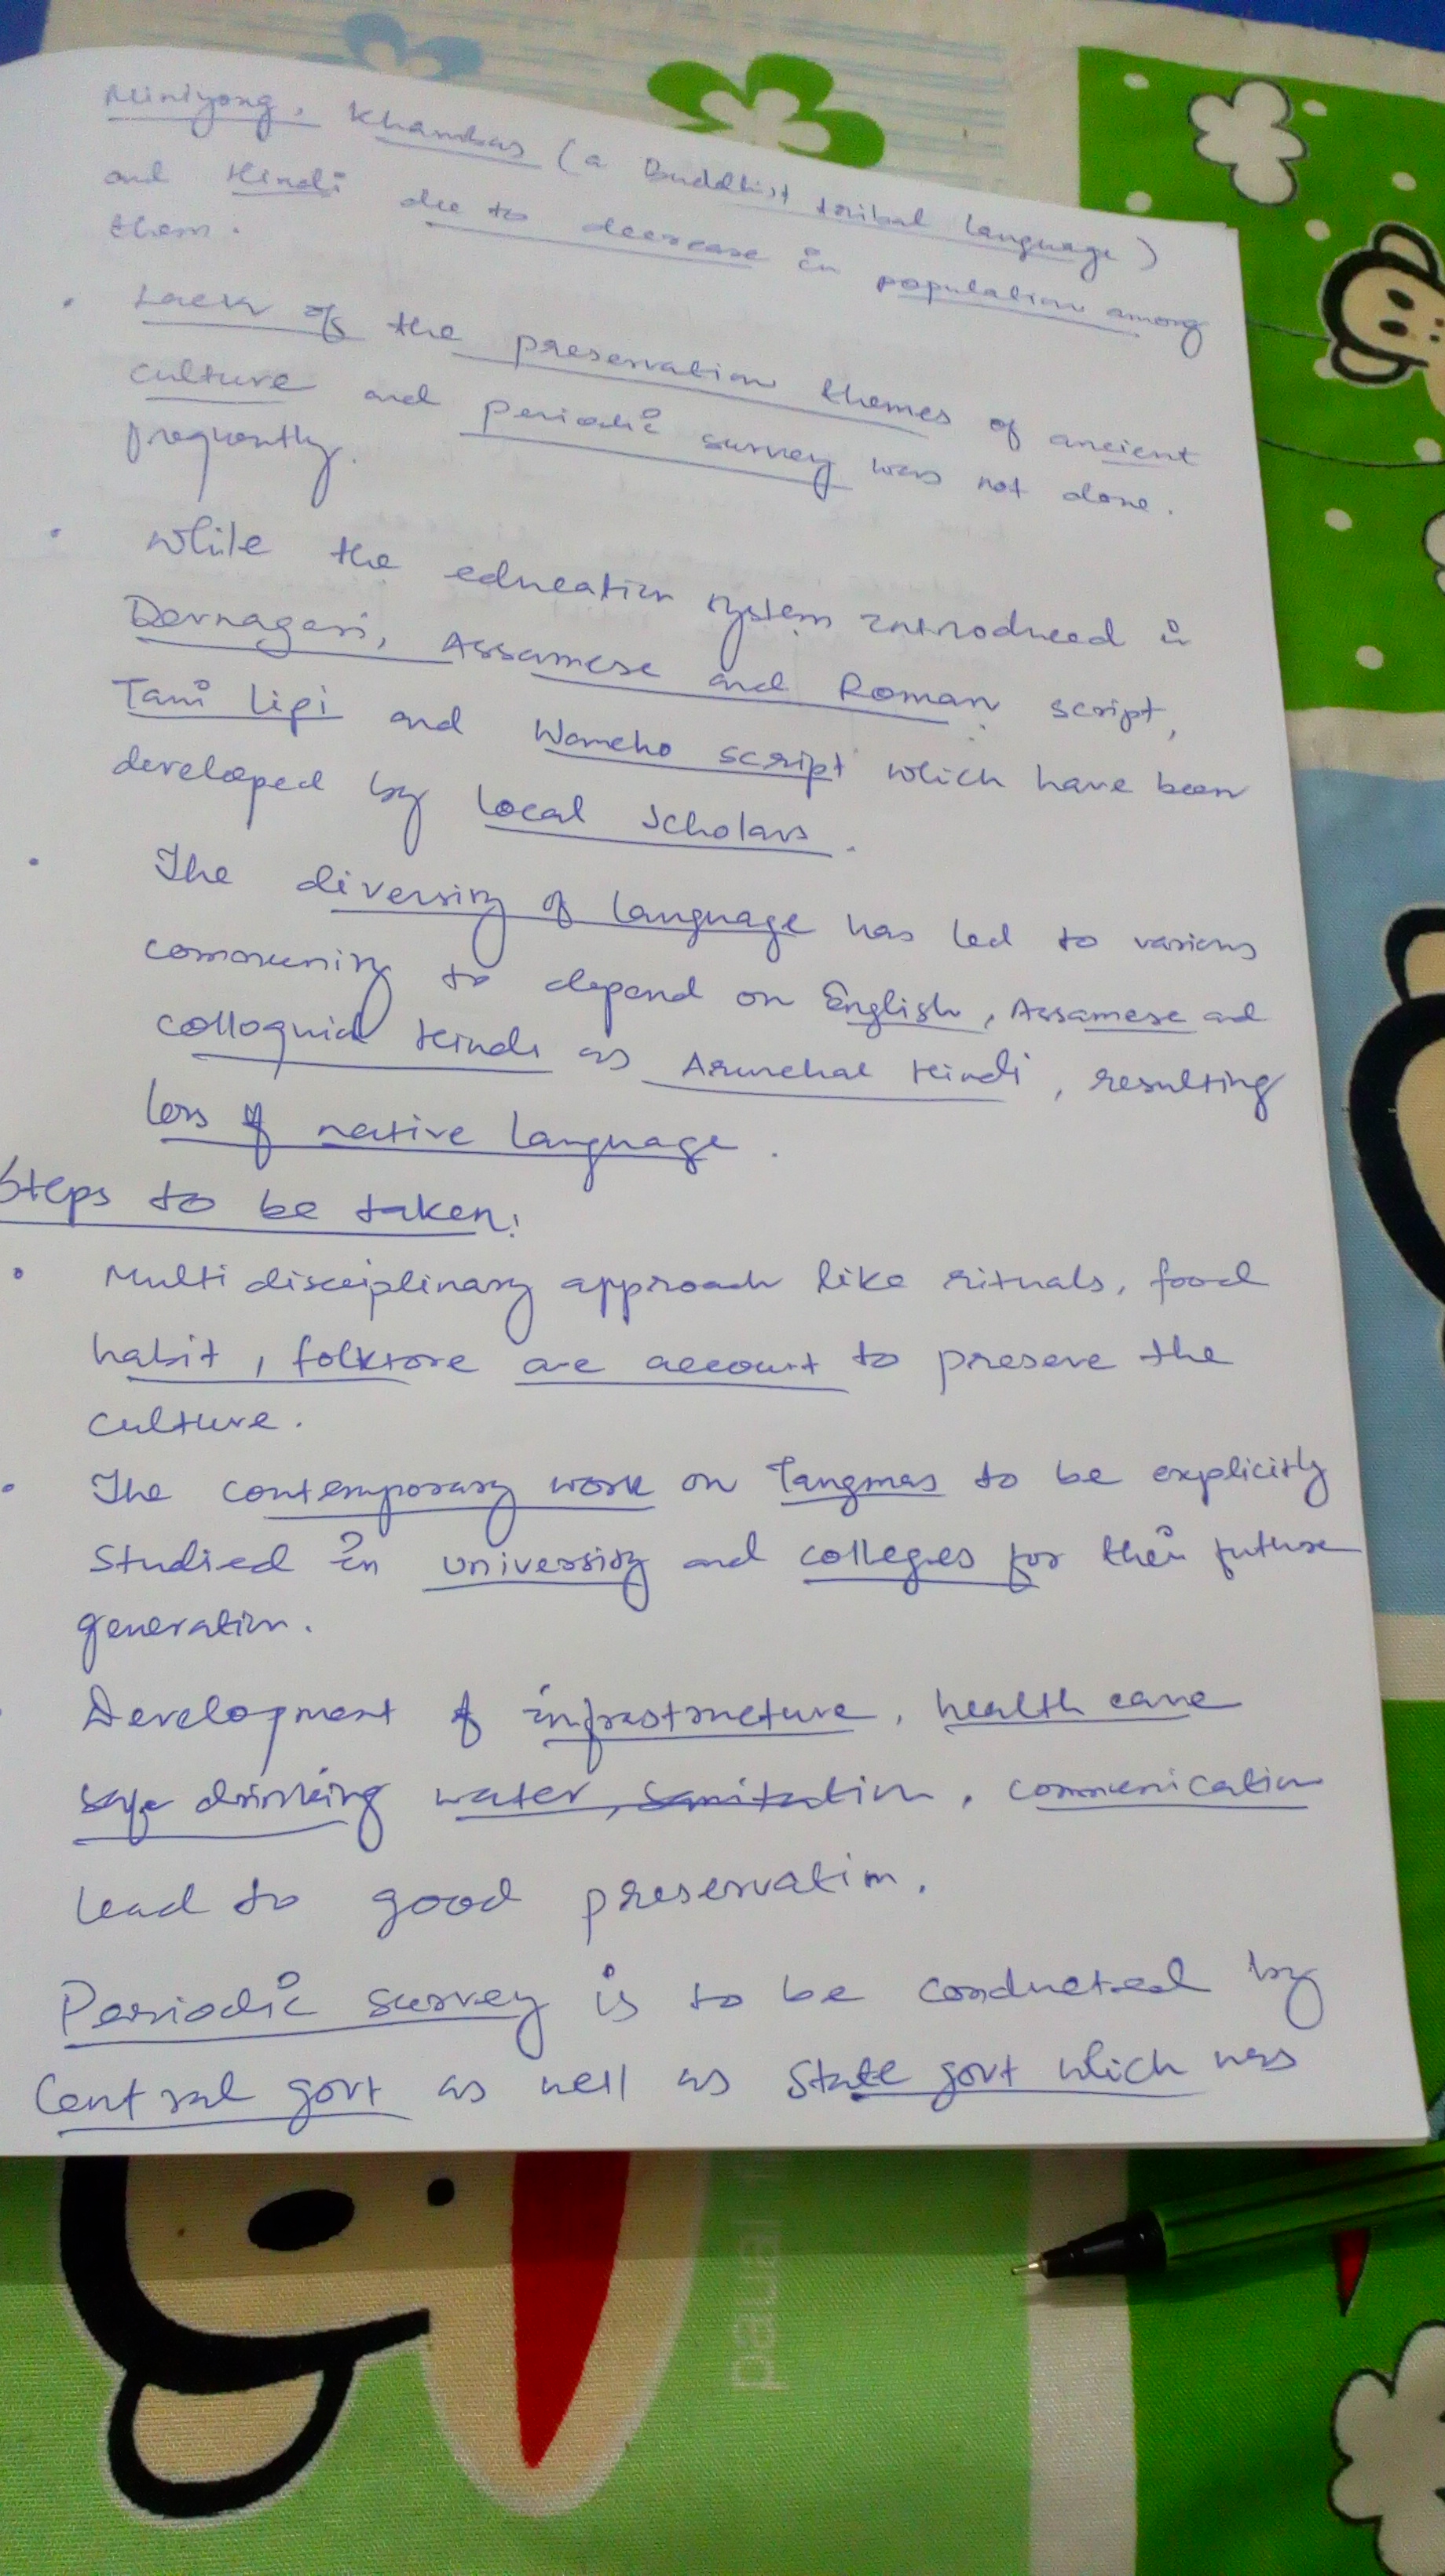 Miniyong, Khambas (a Buddhist tribal language)
and Hindi due to decrease in population among
them.
• Lack of the preservation themes of ancient
culture and periodic survey was not done.
frequently.
• While the education system introduced in
Devnagari, Assamese and Roman script,
Tani lipi and Wancho script which have been
developed by local scholars.
• The diversity of language has led to various
community to depend on English, Assamese and
colloquial Hindi as Arunchal Hindi, resulting
loss of native language.
Steps to be taken:
• Multi disciplinary approach like rituals, food
habit, folklore are account to preserve the
culture.
• The contemporary work on Tangmas to be explicitly
studied in university and colleges for their future
generation.
Development of infrastructure, health care
safe drinking water, sanitation, communication
lead to good preservation.
Periodic survey is to be conducted by
Central govt as well as State govt which was
paul